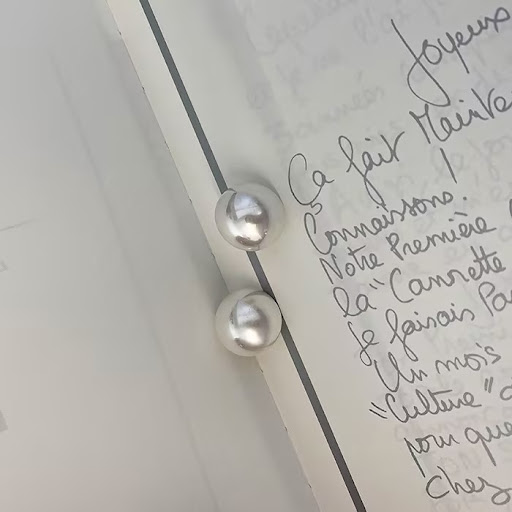 Joyeux
Ça fait Mainte
!
Connaissons.
Notre Première
la "Cannette
Je faisais Pa
Un mois
"Culture"
pour que
chez